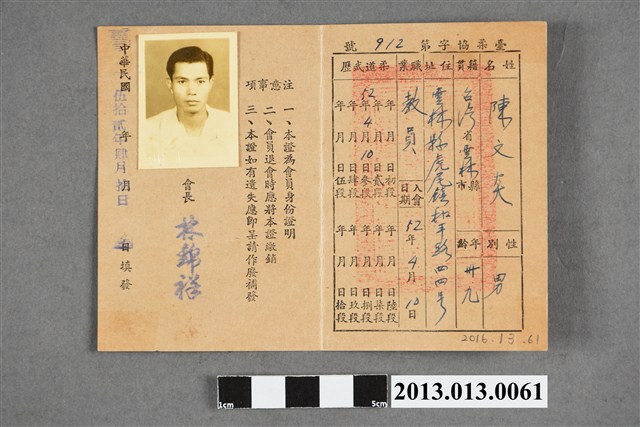 臺柔協字第 912 號
姓名 陳文炎
性別 男
籍貫 台灣省雲林縣市
年齡 卅九
住址 雲林縣虎尾鎮和平路四四号
職業 教員
入會日期 52年4月10日
柔道武歷
年 月 日初段
年 月 日貳段
52年4月10日參段
年 月 日肆段
年 月 日伍段
年 月 日陸段
年 月 日柒段
年 月 日捌段
年 月 日玖段
年 月 日拾段
注意事項
一、本證為會員身份證明
二、會員退會時應將本證繳銷
三、本證如有遺失應即呈請作廢補發
會長 林錦祥
中華民國 年 月 日填發
伍拾貳年肆月拾日
2016.13.61
1cm
5cm
2013.013.0061